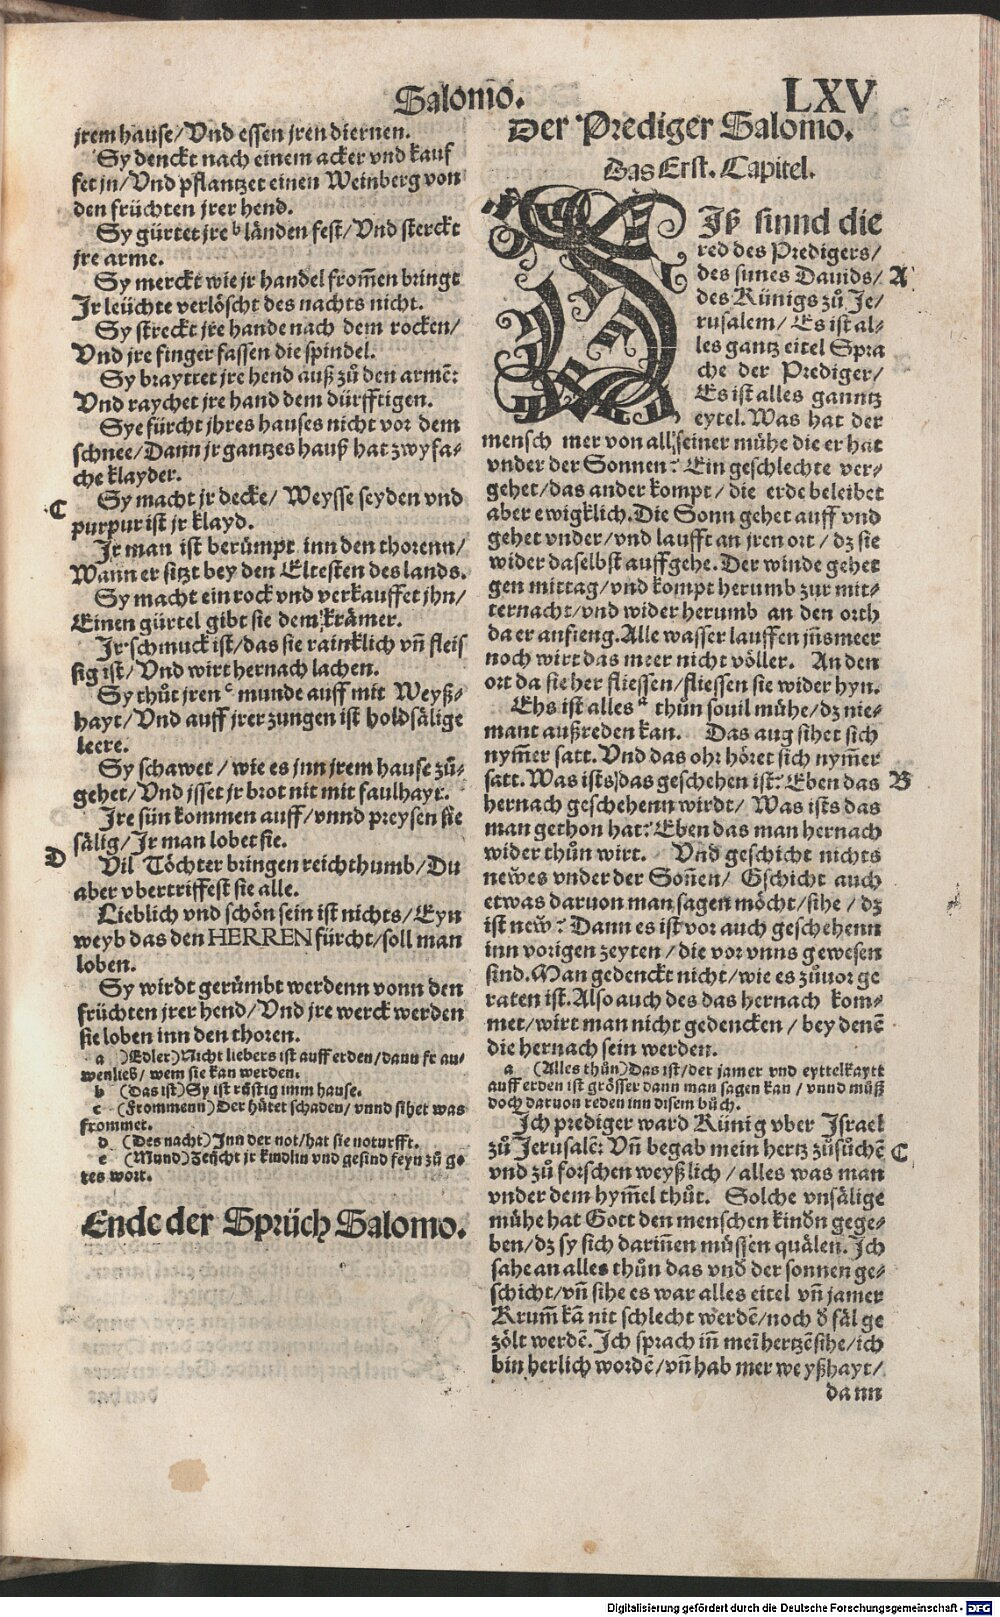 Salomo.
LXV
jrem hause/Vnd essen jren diernen.
Sy denckt nach einem acker vnd kauf
fet jn/Vnd pflantzet einen Weinberg von
den früchten jrer hend.
Sy gürtet jre b länden fest/Vnd sterckt
jre arme.
Sy merckt wie jr handel from̃en bringt
Jr leüchte verlöscht des nachts nicht.
Sy streckt jre hande nach dem rocken/
Vnd jre finger fassen die spindel.
Sy brayttet jre hend auß zů den armẽ:
Vnd raychet jre hand dem dürfftigen.
Sye fürcht jhres hauses nicht vor dem
schnee/Dann jr gantzes hauß hat zwyfa-
che klayder.
C
Sy macht jr decke/ Weysse seyden vnd
purpur ist jr klayd.
Jr man ist berümpt inn den thorenn/
Wann er sitzt bey den Eltesten des lands.
Sy macht ein rock vnd verkauffet jhn/
Einen gürtel gibt sie dem krämer.
Jr schmuck ist/das sie rainklich vñ fleis
sig ist/Vnd wirt hernach lachen.
Sy thůt jren e munde auff mit Weyß-
hayt/Vnd auff jrer zungen ist holdsälige
leere.
Sy schawet/wie es jnn jrem hause zů-
gehet/Vnd jsset jr brot nit mit faulhayt.
Jre sün kommen auff/vnnd preysen sie
sälig/Jr man lobet sie.
D
Vil Töchter bringen reichthumb/Du
aber vbertriffest sie alle.
Lieblich vnd schön sein ist nichts/Eyn
weyb das den HERREN fürcht/soll man
loben.
Sy wirdt gerümbt werdenn vonn den
früchten jrer hend/Vnd jre werck werden
sie loben inn den thoren.
a (Edler) Nicht liebers ist auff erden/dann fr au-
wenlieb/ wem sie kan werden.
b (Das ist) Sy ist rüstig imm hause.
c (Frommenn) Der hütet schaden/ vnnd sihet was
frommet.
d (Des nacht) Jnn der not/hat sie noturfft.
e (Mund) Zeücht jr kindlin vnd gesind feyn zů go
tes wort.
Ende der Sprüch Salomo.
Der Prediger Salomo.
Das Erst. Capitel.
DIß sinnd die
red des Predigers/
des sunes Dauids/
A
des Künigs zů Je-
rusalem/ Es ist al-
les gantz eitel Spra
che der Prediger/
Es ist alles ganntz
eytel. Was hat der
mensch mer von all seiner mühe die er hat
vnder der Sonnen? Ein geschlechte ver-
gehet/das ander kompt/die erde beleibet
aber ewigklich. Die Sonn gehet auff vnd
gehet vnder/vnd laufft an jren ort/dz sie
wider daselbst auffgehe. Der winde gehet
gen mittag/vnd kompt herumb zur mit-
ternacht/vnd wider herumb an den orth
da er anfieng. Alle wasser lauffen jñs meer
noch wirt das meer nicht völler. An den
ort da sie her fliessen/fliessen sie wider hyn.
Ehs ist alles a thůn souil mühe/dz nie-
mant außreden kan. Das aug sihet sich
nym̃er satt. Vnd das ohr höret sich nym̃er
satt. Was ists das geschehen ist? Eben das
B
hernach geschehenn wirdt/ Was ists das
man gethon hat? Eben das man hernach
wider thůn wirt. Vnd geschicht nichts
newes vnder der Soñen/ Gschicht auch
etwas daruon man sagen möcht/sihe/dz
ist new? Dann es ist vor auch geschehenn
inn vorigen zeyten/die vor vnns gewesen
sind. Man gedenckt nicht/wie es zůuor ge
raten ist. Also auch des das hernach kom-
met/wirt man nicht gedencken/bey denẽ
die hernach sein werden.
a (Alles thůn) Das ist/der jamer vnd eyttelkaytt
auff erden ist grösser dann man sagen kan/vnnd můß
doch daruon reden inn disem bůch.
Jch prediger ward Künig vber Jsrael
zů Jerusalẽ: Vñ begab mein hertz zůsůchẽ
C
vnd zů forschen weyßlich/alles was man
vnder dem hym̃el thůt. Solche vnsälige
mühe hat Gott den menschen kindn gege-
ben/dz sy sich dariñen müssen quälen. Jch
sahe an alles thůn das vnd der sonnen ge-
schicht/vñ sihe es war alles eitel vñ jamer
Krum̃ kã nit schlecht werdẽ/noch d fäl ge
zölt werdẽ. Jch sprach iñ mei hertzẽ sihe/ich
bin herlich wordẽ/vñ hab mer weyßhayt/
dann
Digitalisierung gefördert durch die Deutsche Forschungsgemeinschaft - DFG